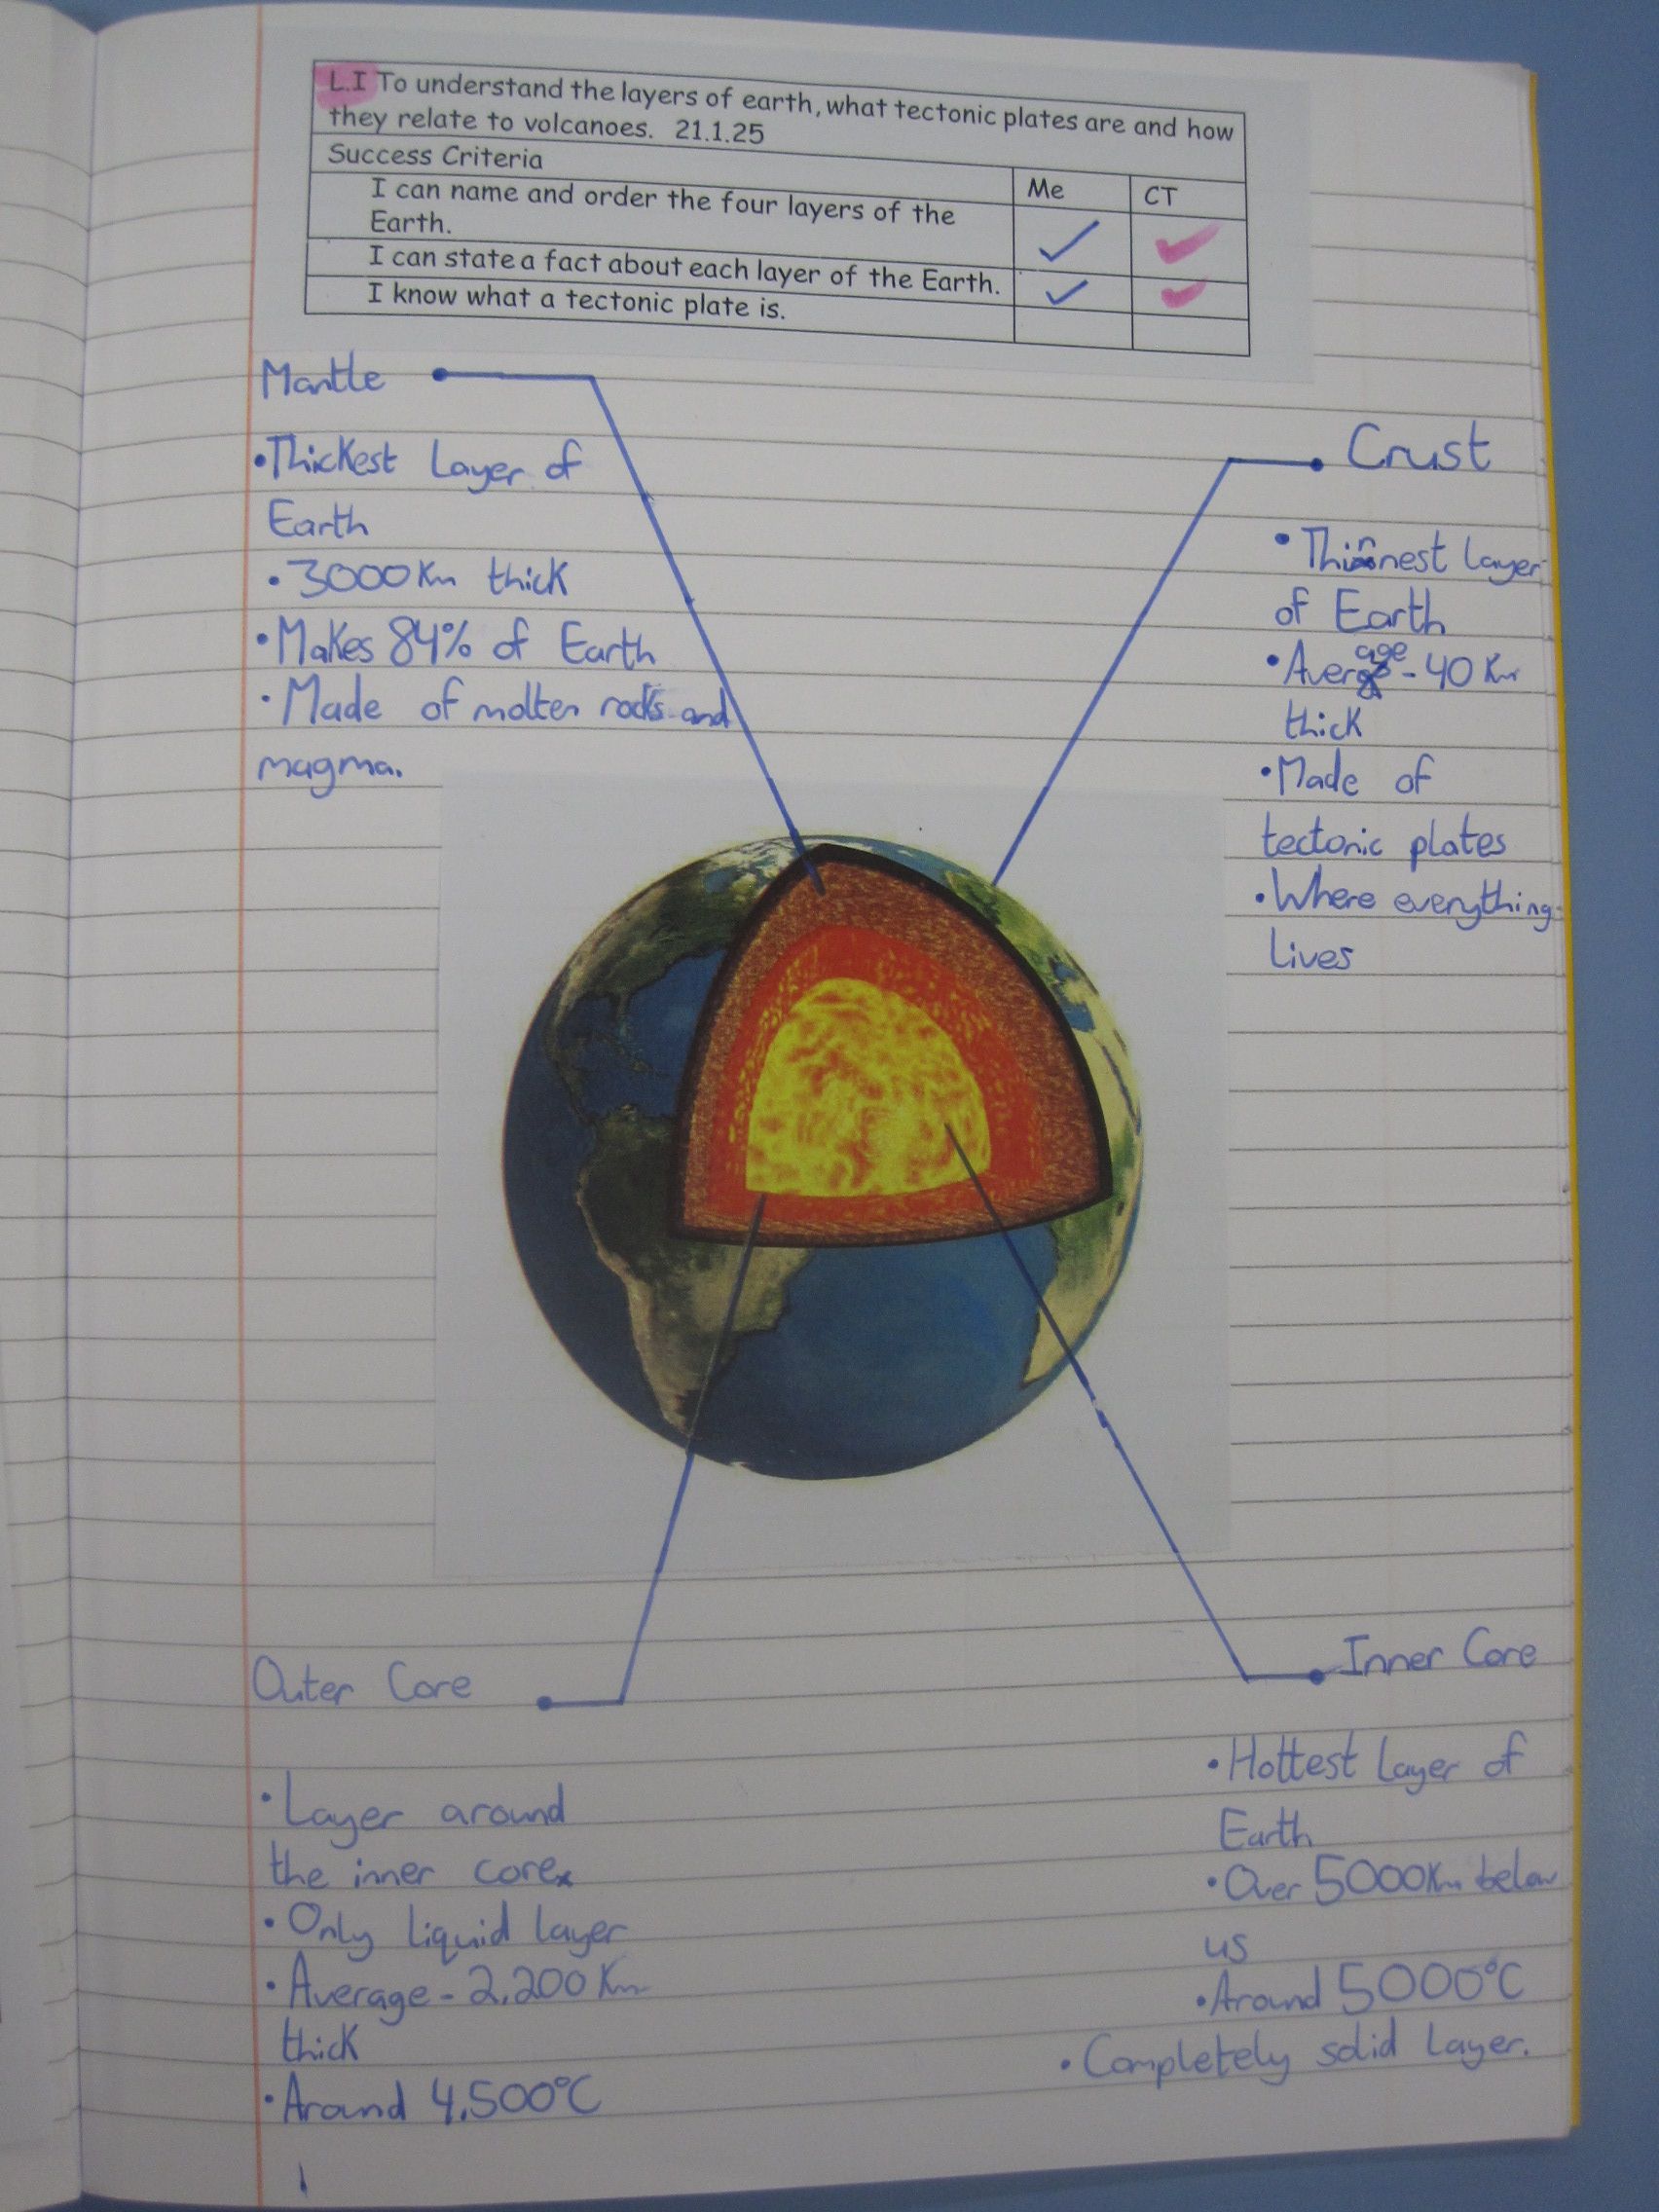 L.I To understand the layers of earth, what tectonic plates are and how
they relate to volcanoes. 21.1.25
Success Criteria
Me
CT
I can name and order the four layers of the
Earth.
I can state a fact about each layer of the Earth.
I know what a tectonic plate is.
Mantle
•Thickest Layer of
Earth
•3000Km thick
•Makes 84% of Earth
•Made of molten rocks and
magma.
Crust
•Thinnest Layer
of Earth
•Average - 40 Km
thick
•Made of
tectonic plates
•Where everything
Lives
Outer Core
•Layer around
the inner core
•Only liquid layer
•Average - 2,200 Km
thick
•Around 4,500°C
Inner Core
•Hottest Layer of
Earth
•Over 5000Km below
us
•Around 5000°C
•Completely solid Layer.